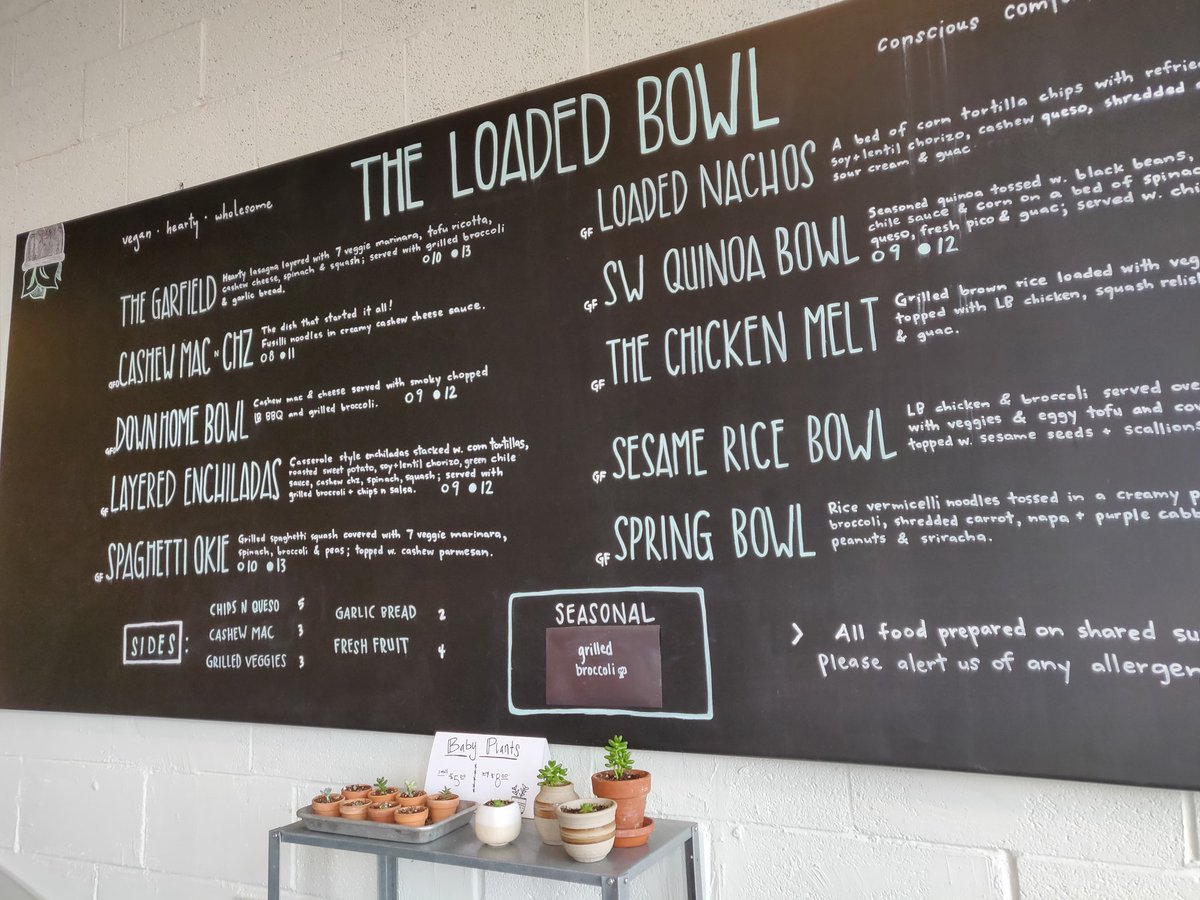 conscious
THE LOADED BOWL
vegan · hearty · wholesome
THE GARFIELD
Hearty lasagna layered with 7 veggie marinara, tofu ricotta,
cashew cheese, spinach & squash; served with grilled broccoli
& garlic bread.
○10 ●13
GFO CASHEW MAC N CHZ
The dish that started it all!
Fusilli noodles in creamy cashew cheese sauce.
○8 ●11
GF DOWN HOME BOWL
Cashew mac & cheese served with smoky chopped
LB BBQ and grilled broccoli. ○9 ●12
GF LAYERED ENCHILADAS
Casserole style enchiladas stacked w. corn tortillas,
roasted sweet potato, soy+lentil chorizo, green chile
sauce, cashew chz, spinach, squash; served with
grilled broccoli + chips n salsa. ○9 ●12
GF SPAGHETTI OKIE
Grilled spaghetti squash covered with 7 veggie marinara,
spinach, broccoli & peas; topped w. cashew parmesan.
○10 ●13
SIDES:
CHIPS N QUESO 5
CASHEW MAC 3
GRILLED VEGGIES 3
GARLIC BREAD 2
FRESH FRUIT 4
GF LOADED NACHOS
A bed of corn tortilla chips with
soy+lentil chorizo, cashew queso, shredded
sour cream & guac
GF SW QUINOA BOWL
Seasoned quinoa tossed w. black beans,
chile sauce & corn on a bed of
queso, fresh pico & guac; served w.
○9 ●12
GF THE CHICKEN MELT
Grilled brown rice loaded with
topped with LB chicken, squash
& guac.
GF SESAME RICE BOWL
LB chicken & broccoli served
with veggies & eggy tofu and
topped w. sesame seeds + scallions
GF SPRING BOWL
Rice vermicelli noodles tossed in a creamy
broccoli, shredded carrot, napa + purple
peanuts & sriracha.
SEASONAL
grilled
broccoli
> All food prepared on shared
Please alert us of any
Baby Plants
small $5.00 $8.00